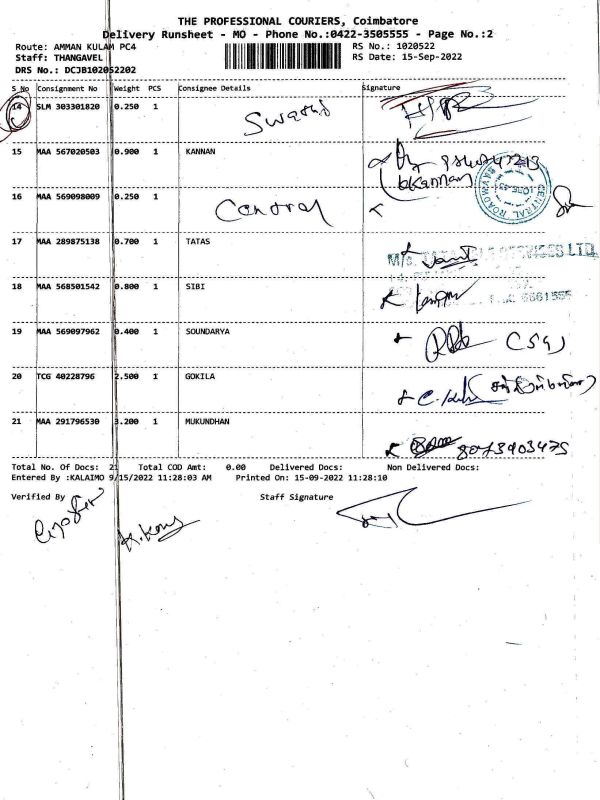 THE PROFESSIONAL COURIERS, Coimbatore
Delivery Runsheet - MO - Phone No.:0422-3505555 - Page No.:2
Route: AMMAN KULAM PC4 RS No.: 1020522
Staff: THANGAVEL RS Date: 15-Sep-2022
DRS No.: DCJB102052202
S No Consignment No Weight PCS Consignee Details Signature
14 SLM 303301820 0.250 1
15 MAA 567020503 0.900 1 KANNAN
bkannan
16 MAA 569098009 0.250 1 Central
CENTRAL ROADWAYS
17 MAA 289875138 0.700 1 TATAS
M/s.
18 MAA 568501542 0.800 1 SIBI
19 MAA 569097962 0.400 1 SOUNDARYA
20 TCG 40228796 2.500 1 GOKILA
21 MAA 291796530 3.200 1 MUKUNDHAN
8073903475
Total No. Of Docs: 21 Total COD Amt: 0.00 Delivered Docs: Non Delivered Docs:
Entered By :KALAIMO 9/15/2022 11:28:03 AM Printed On: 15-09-2022 11:28:10
Verified By Staff Signature